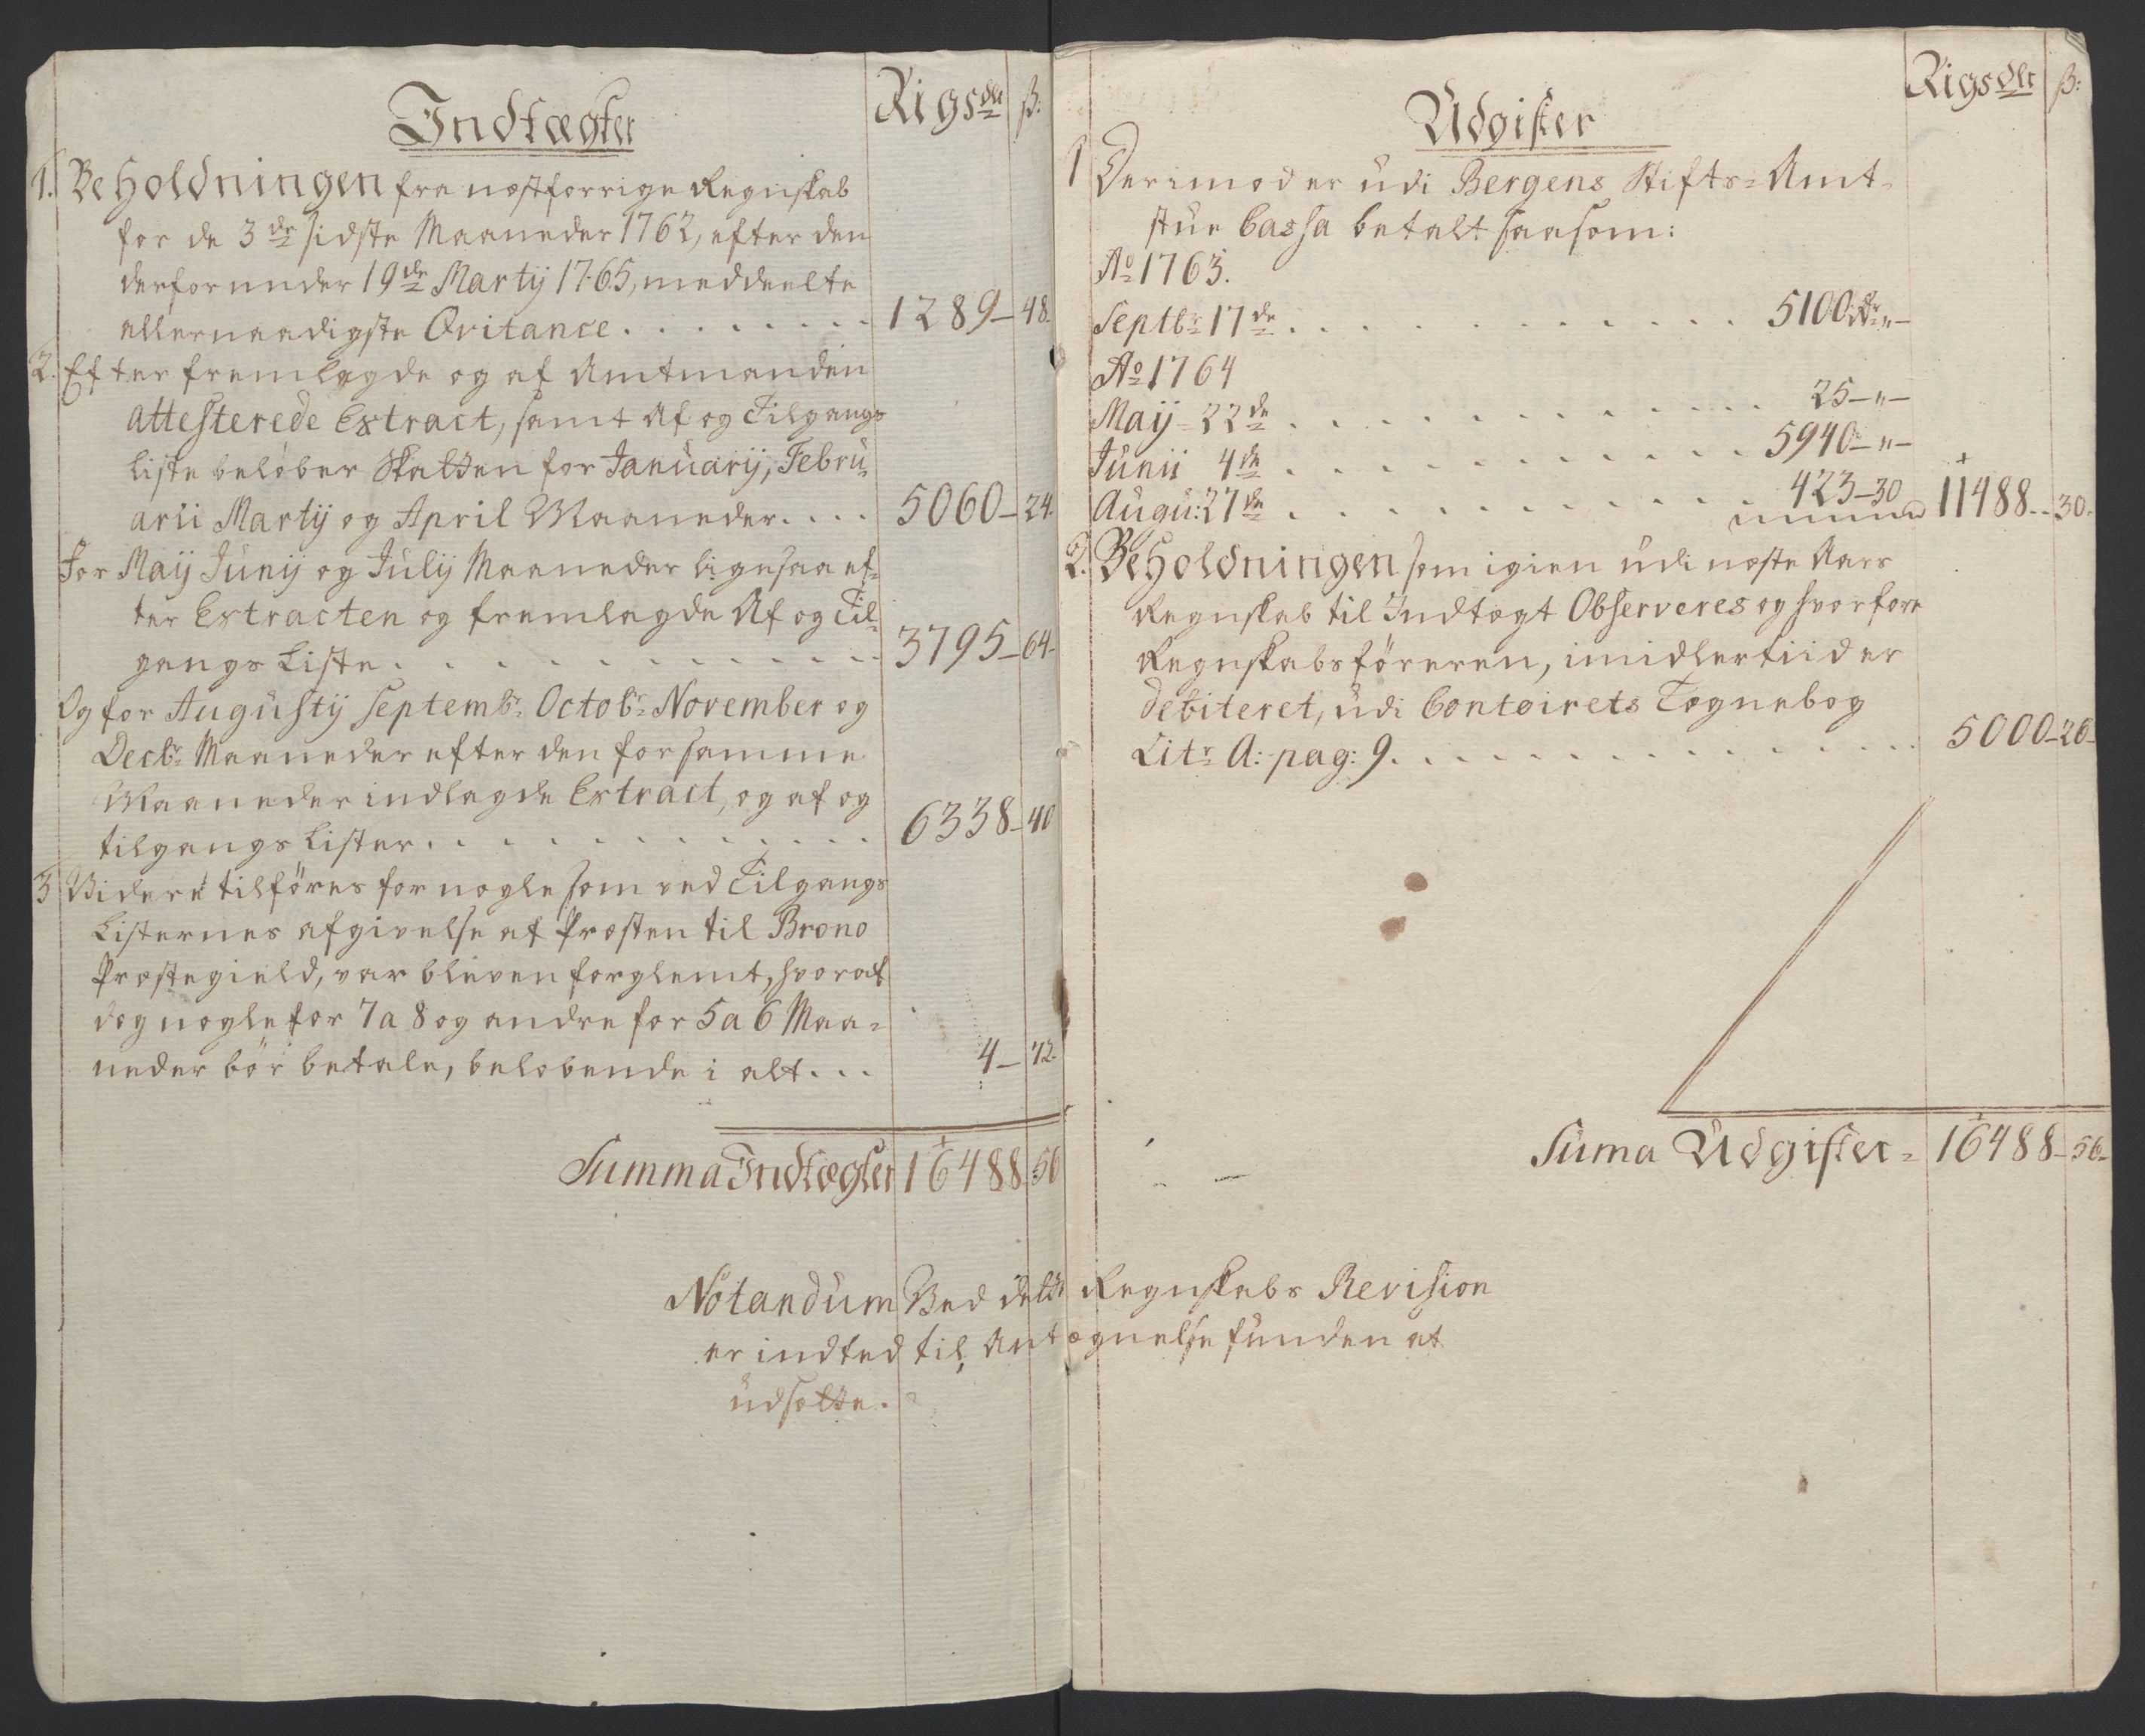 Indtægter
Rigsdlr ß:
1. Beholdningen fra næstforrige Regnskab
for de 3de sidste Maaneder 1762, efter den
derfor under 19de Martij 1765, meddeelte
allernaadigste Qvitance . . . . . . . . 1289 – 48.
2. Efter fremlagde og af Amtmanden
attesterede Extract, samt Af og Tilgangs
Liste beløber Skatten for Januarij, Febru-
arii Martij og April Maaneder . . . . 5060 – 24.
For Maij Junij og Julij Maaneder ligesaa ef-
ter Extracten og fremlagde Af og Til-
gangs Liste . . . . . . . . . . . . 3795 – 64.
Og for Augustij Septembr: Octobr: November og
Decbr: Maaneder efter den for samme
Maaneder indlagde Extract, og af og
tilgangs Lister . . . . . . . . . . . 6338 – 40
3 Videre tilføres for nogle som ved Tilgangs
Listernes afgivelse af Præsten til Brønø
Præstegield, var bleven forglemt, hvoraf
dog nogle for 7 a 8 og andre for 5 a 6 Maa-
neder bør betale, beløbende i alt . . . 4 – 72.
Summa Indtægter 16488 56
Udgifter
Rigsdlr ß:
1 Derimod er udi Bergens Stifts-Amt-
stue Cassa betalt saasom:
Ao 1763.
Septbr: 17de . . . . . . . . . . . . 5100 rdr „ –
Ao 1764
Maij - 22de . . . . . . . . . . . . 25 – „ –
Junii 4de . . . . . . . . . . . . 5940 – „ –
Augu: 27de . . . . . . . . . . . . 423 – 30 11488 – 30.
2. Beholdningen som igien udi næste Aars
Regnskab til Indtægt Observeres og hvorfore
Regnskabsføreren, imidlertiid er
debiteret, udi Contoirets Tegnebog
Litr: A: pag: 9. . . . . . . . . . . . . 5000 – 26 –
Suma Udgifter - 16488 – 56 –
Notandum Ved dette Regnskabs Revision
er indted til Antegnelse funden at
udsætte.